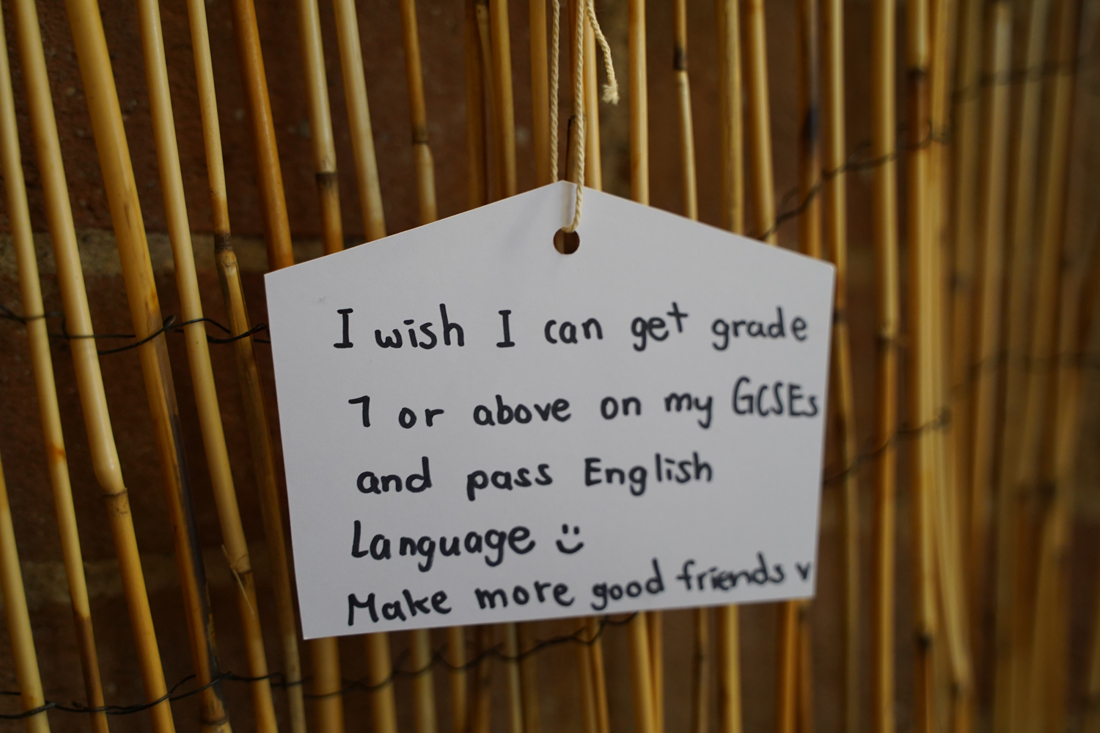 I wish I can get grade
7 or above on my GCSEs
and pass English
Language :)
Make more good friends v